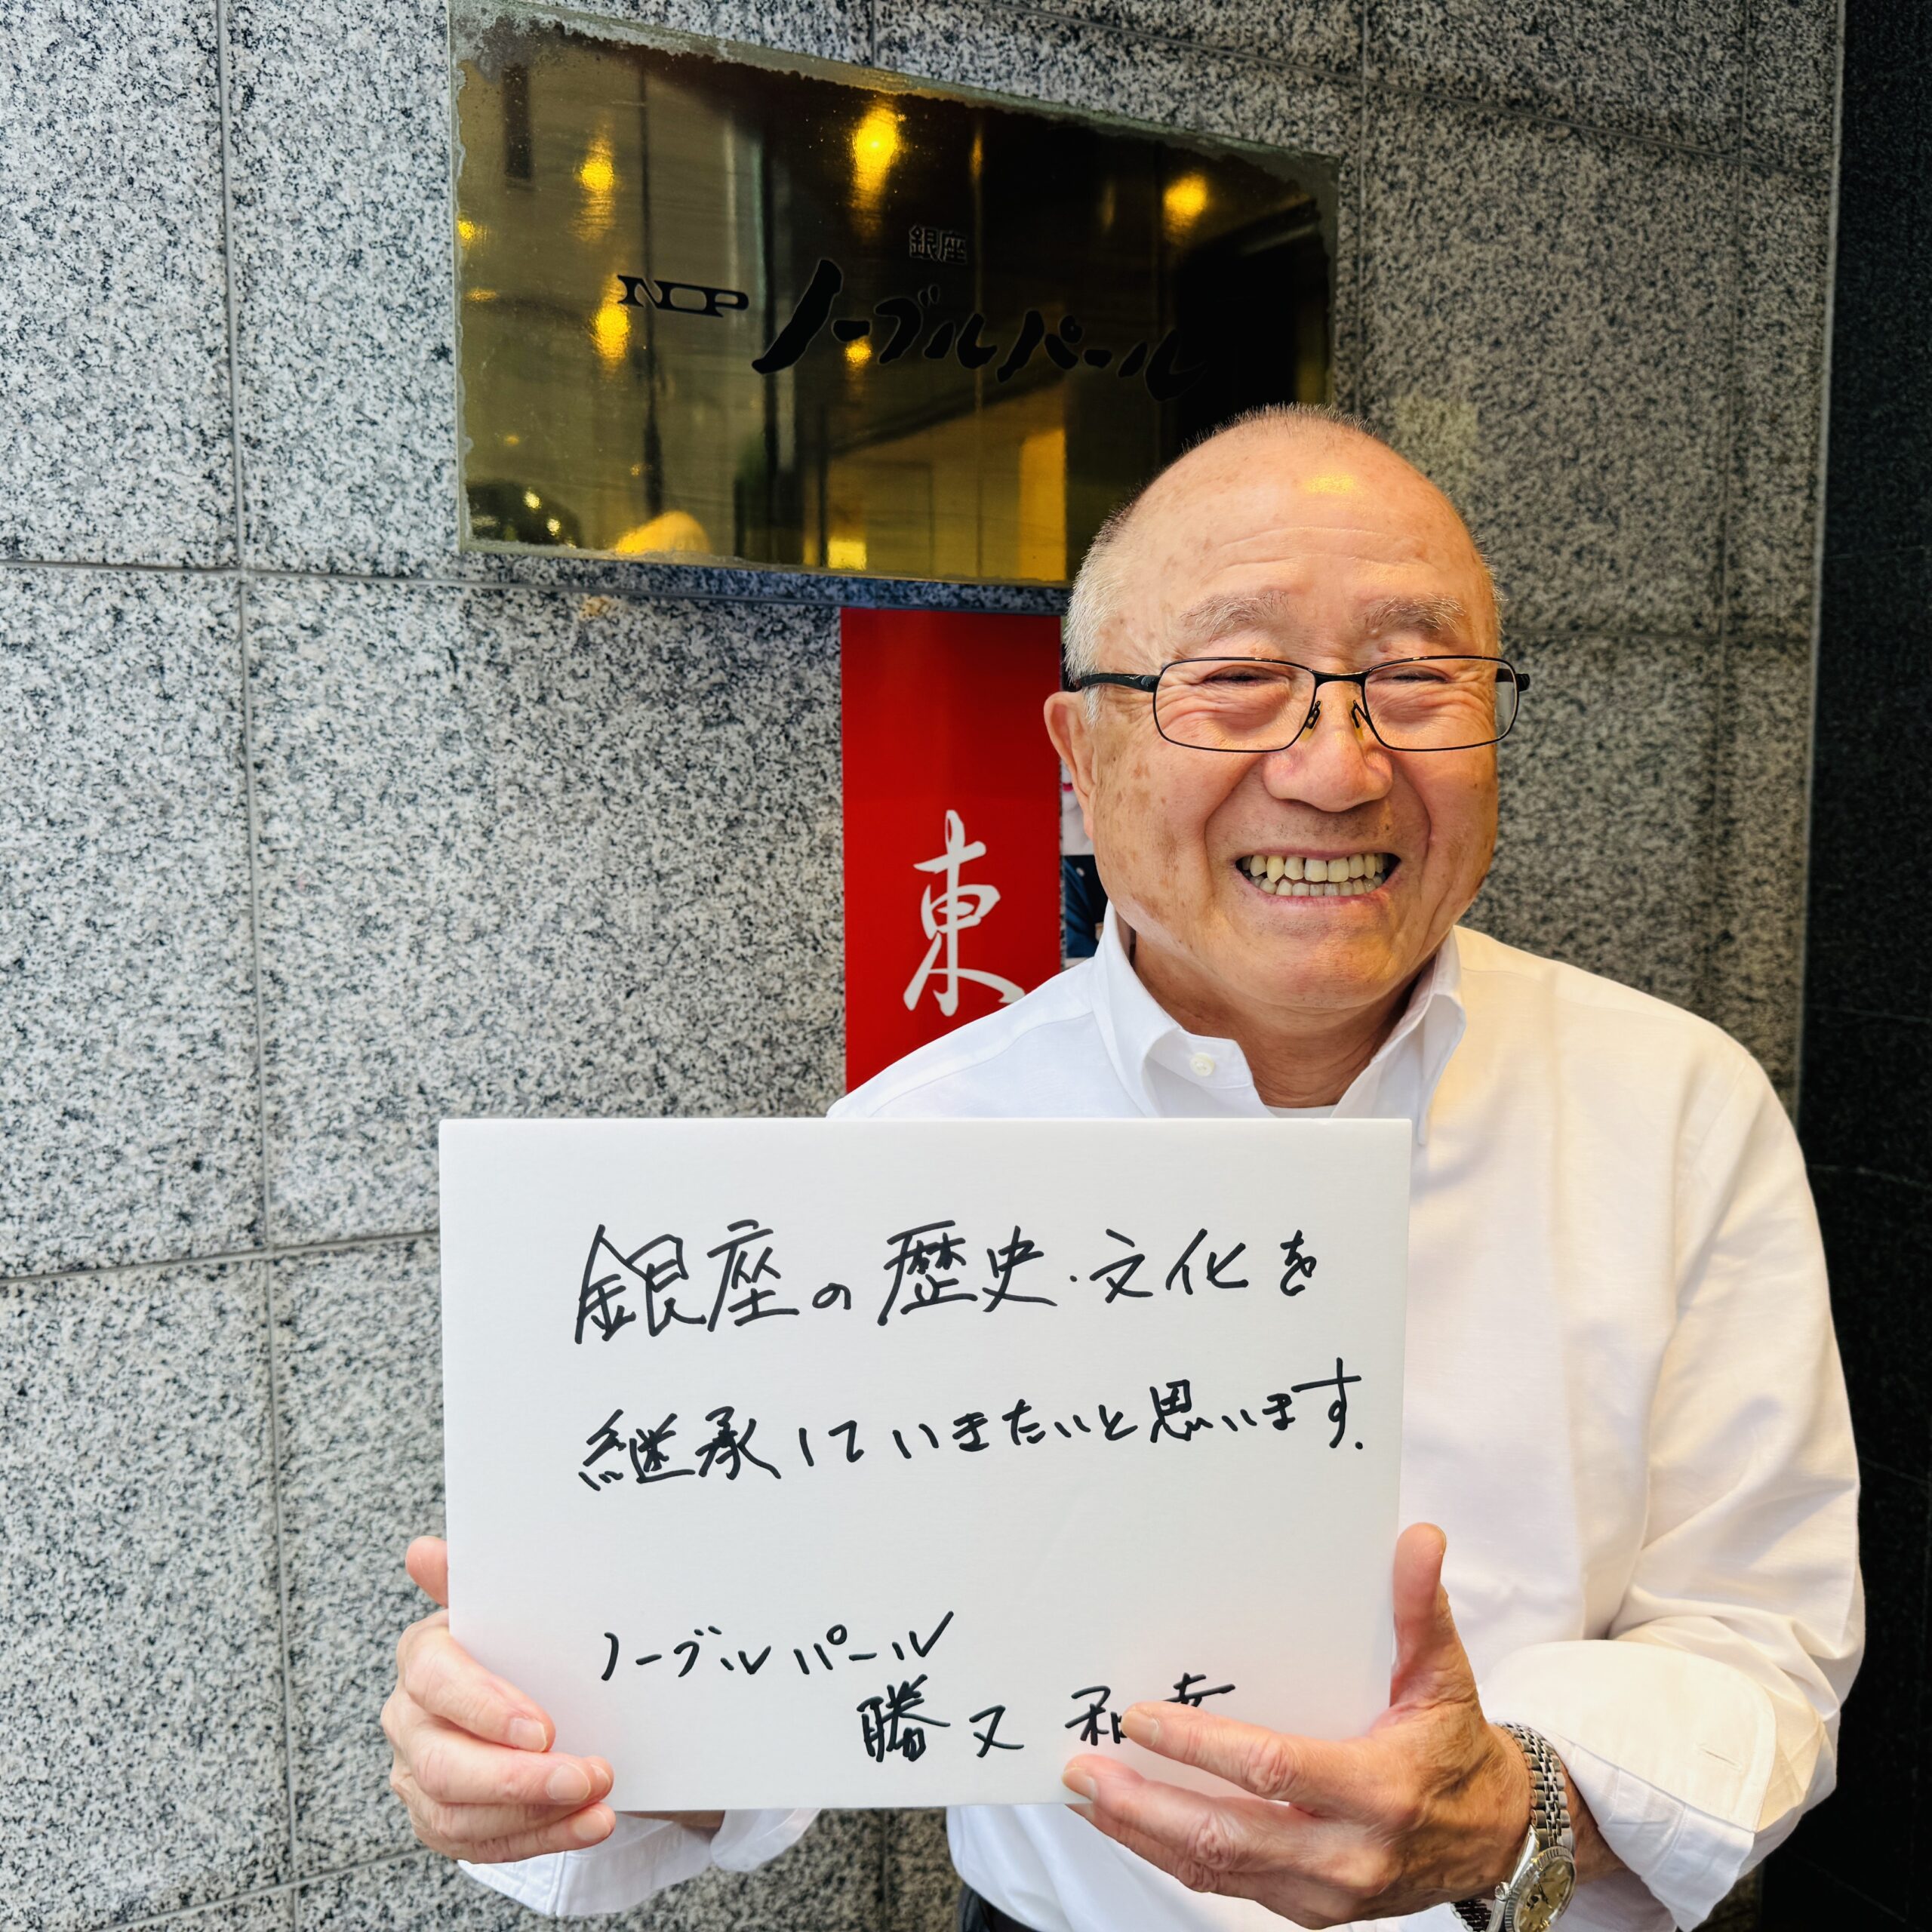 銀座
NP ノーブルパール
東
銀座の歴史・文化を
継承していきたいと思います.
ノーブルパール
勝又 和